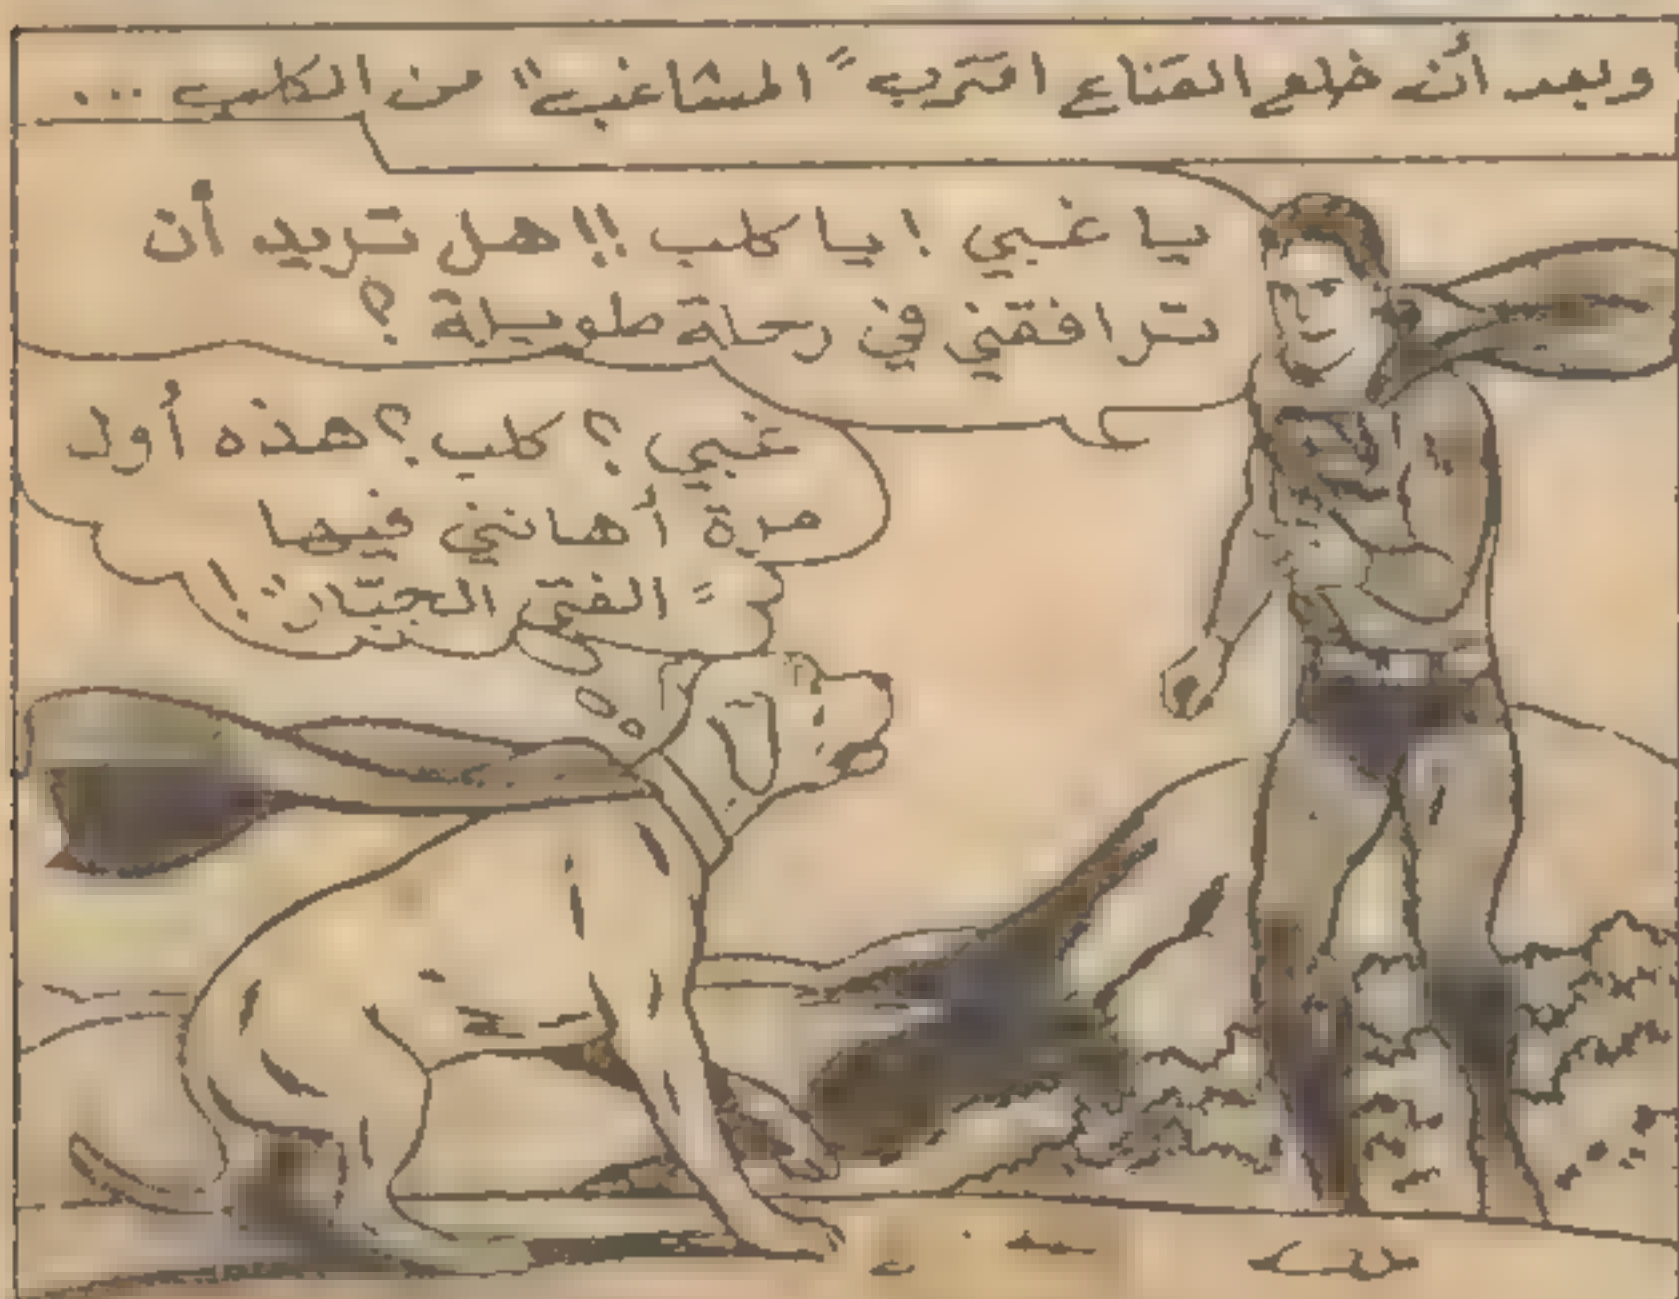 وبعد أن خلع القناع اقترب "المشاغب" من الكلب ...
يا غبي ! يا كلب !! هل تريد أن
ترافقني في رحلة طويلة ؟
غبي ؟ كلب ؟ هذه أول
مرة أهانني فيها
"الفتى الجبّار" !